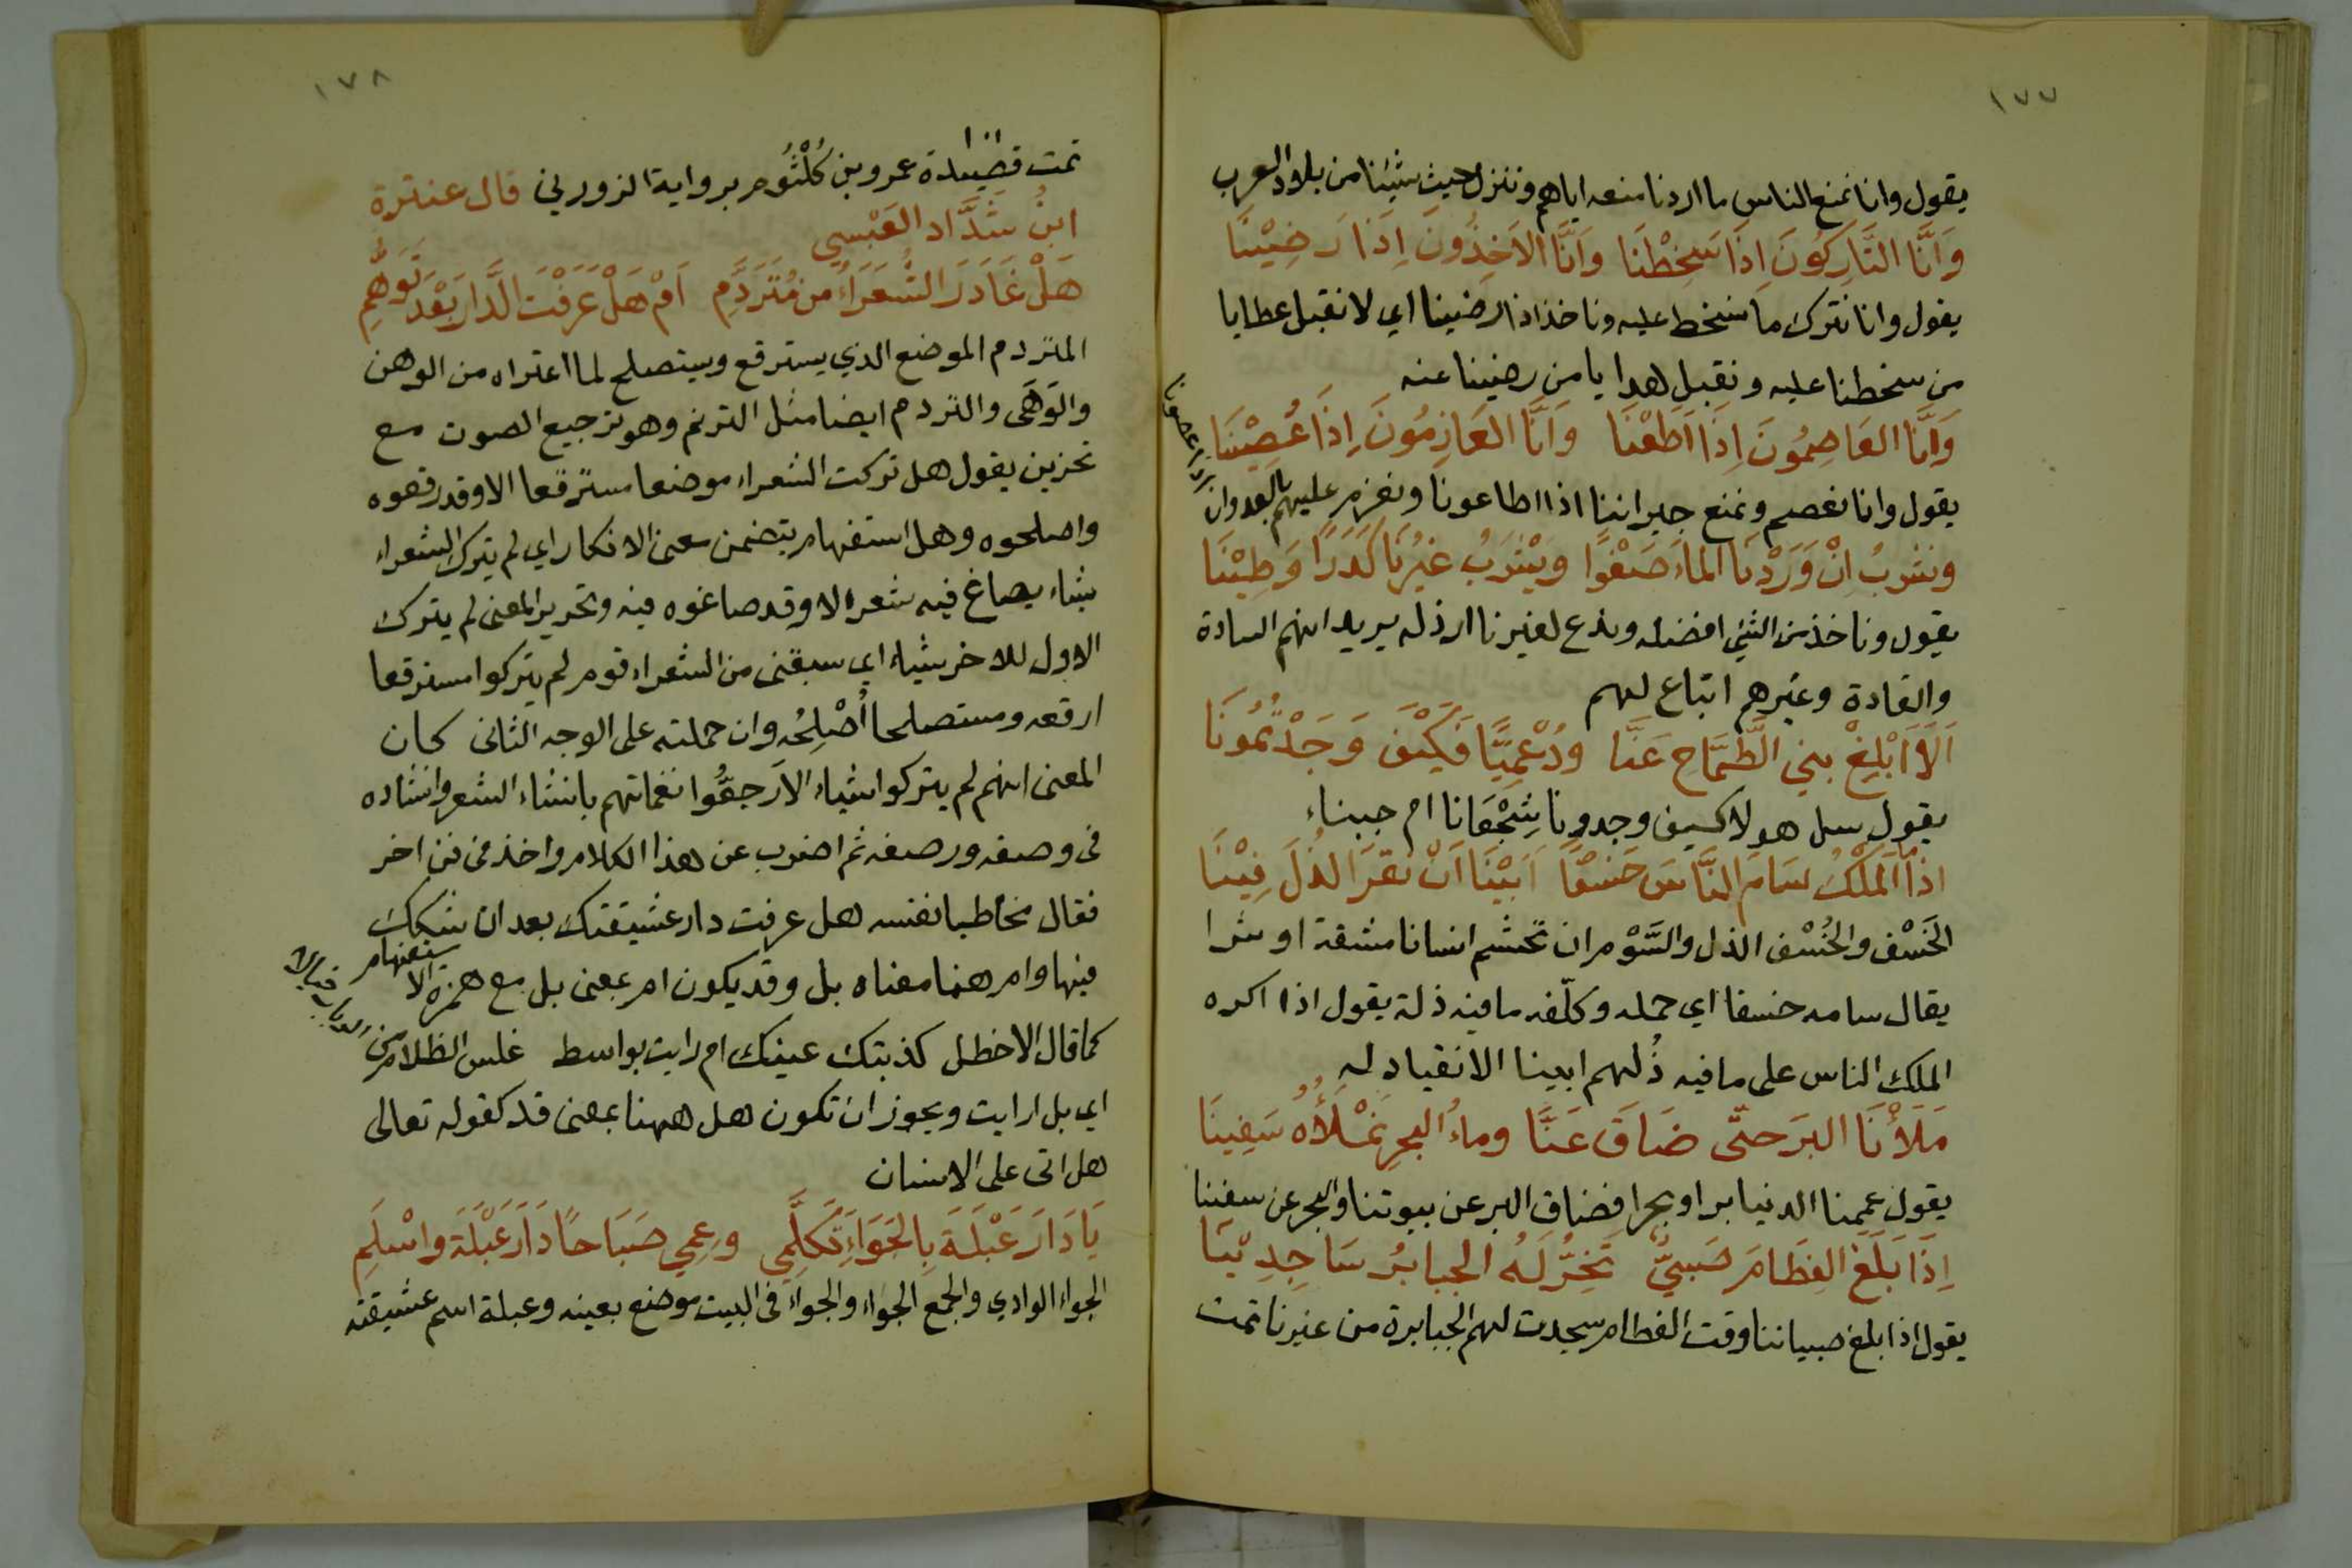 ١٧٧
يقول وانا نمنع الناس ما اردنا منعه اياهم وننزل حيث شئنا من بلاد العرب
وَاَنَّا التَّارِكُونَ اِذَا سَخِطْنَا وَاَنَّا الاَخِذُونَ اِذَا رَضِيْنَا
يقول وانا نترك ما نسخط عليه وناخذ اذا رضينا اي لا نقبل عطايا
من سخطنا عليه ونقبل هدايا من رضينا عنه
وَاَنَّا العَاصِمُونَ اِذَا اَطَعْنَا وَاَنَّا العَازِمُونَ اِذَا عُصِيْنَا
يقول وانا نعصم ونمنع جيراننا اذا اطاعونا ونعزم عليهم بالعدوان
اذا عصونا
ونشربُ اِنْ وَرَدْنَا الماءَ صَفْوًا وَيَشْرَبُ غَيْرُنَا كَدَرًا وَطِيْنَا
يقول وناخذ من الشئ افضله وندع لغيرنا ارذله يريد انهم السادة
والقادة وغيرهم اتباع لهم
اَلَا اَبْلِغْ بني الطَّمَّاحِ عَنَّا ودُعْمِيًّا فَكَيْفَ وَجَدْتُمُونَا
يقول سل هولا كيف وجدونا شُجْعَانا ام جبناء
اذا المَلْكُ سَامَ النَّاسَ خَسْفًا اَبَيْنَا اَنْ نُقِرَّ الذُلَ فِيْنَا
الخَسْف والخُسْف الذل والسَّوْم ان تجشم انسانا مشقة او شرا
يقال سامه خسفا اي حمله وكلّفه ما فيه ذلة يقول اذا اكره
الملك الناس على ما فيه ذُلهم ابينا الانقياد له
مَلَأْنَا البَرَ حتّى ضَاقَ عَنَّا وماءُ البحرِ نَمْلَأُهُ سَفِينَا
يقول عممنا الدنيا برا وبحرا فضاق البر عن بيوتنا والبحر عن سفننا
اِذَا بَلَغَ الفِطَامَ صَبِيٌّ تَخِرُّ لَهُ الجبابرُ سَاجِدِيْنَا
يقول اذا بلغ صبياننا وقت الفطام سجدت لهم الجبابرة من غيرنا تمت
١٧٨
تمت قصيدة عمرو بن كُلْثُوم برواية الزوزني قال عنترة
ابنُ شَدَّاد العَبْسي
هَلْ غَادَرَ الشُّعَرَاءُ من مُتَرَدَّمِ اَمْ هَلْ عَرَفْتَ الدَّارَ بَعْدَ تَوَهُّمِ
المتردم الموضع الذي يسترقع ويستصلح لما اعتراه من الوهن
والوَهَى والتردم ايضا مثل الترنم وهو ترجيع الصوت مع
تحزين يقول هل تركت الشعراء موضعا مسترقعا الا وقد رقعوه
واصلحوه وهل استفهام يتضمن معنى الانكار اي لم يترك الشعراء
شياء يصاغ فيه شعر الا وقد صاغوه فيه وتحرير المعنى لم يترك
الاول للاخر شياء اي سبقنى من الشعراء قوم لم يتركوا مسترقعا
ارقعه ومستصلحا أُصْلِحُه وان حملته على الوجه الثانى كان
المعنى انهم لم يتركوا شياء الا رجعُّوا نغماتهم بانشاء الشعر وانشاده
فى وصفه ورصفه ثم اضرب عن هذا الكلام واخذ فى فن اخر
فقال مخاطبا نفسه هل عرفت دار عشيقتك بعد ان شكك
فيها وام هنا معناه بل وقد يكون ام بمعنى بل مع همزة الاستفهام
كما قال الاخطل كذبتك عينك ام رايت بواسط غلس الظلام من الرباب خيالا
اي بل ارايت ويجوز ان تكون هل ههنا بمعنى قد كقوله تعالى
هل اتى على الانسان
يَا دَارَ عَبْلَةَ بِالجَوَاءِ تَكَلَّمِي وعِمِي صَبَاحًا دَارَ عَبْلَةَ واسْلَمِ
الجواء الوادي والجمع الجواء والجواء فى البيت موضع بعينه وعبلة اسم عشيقته